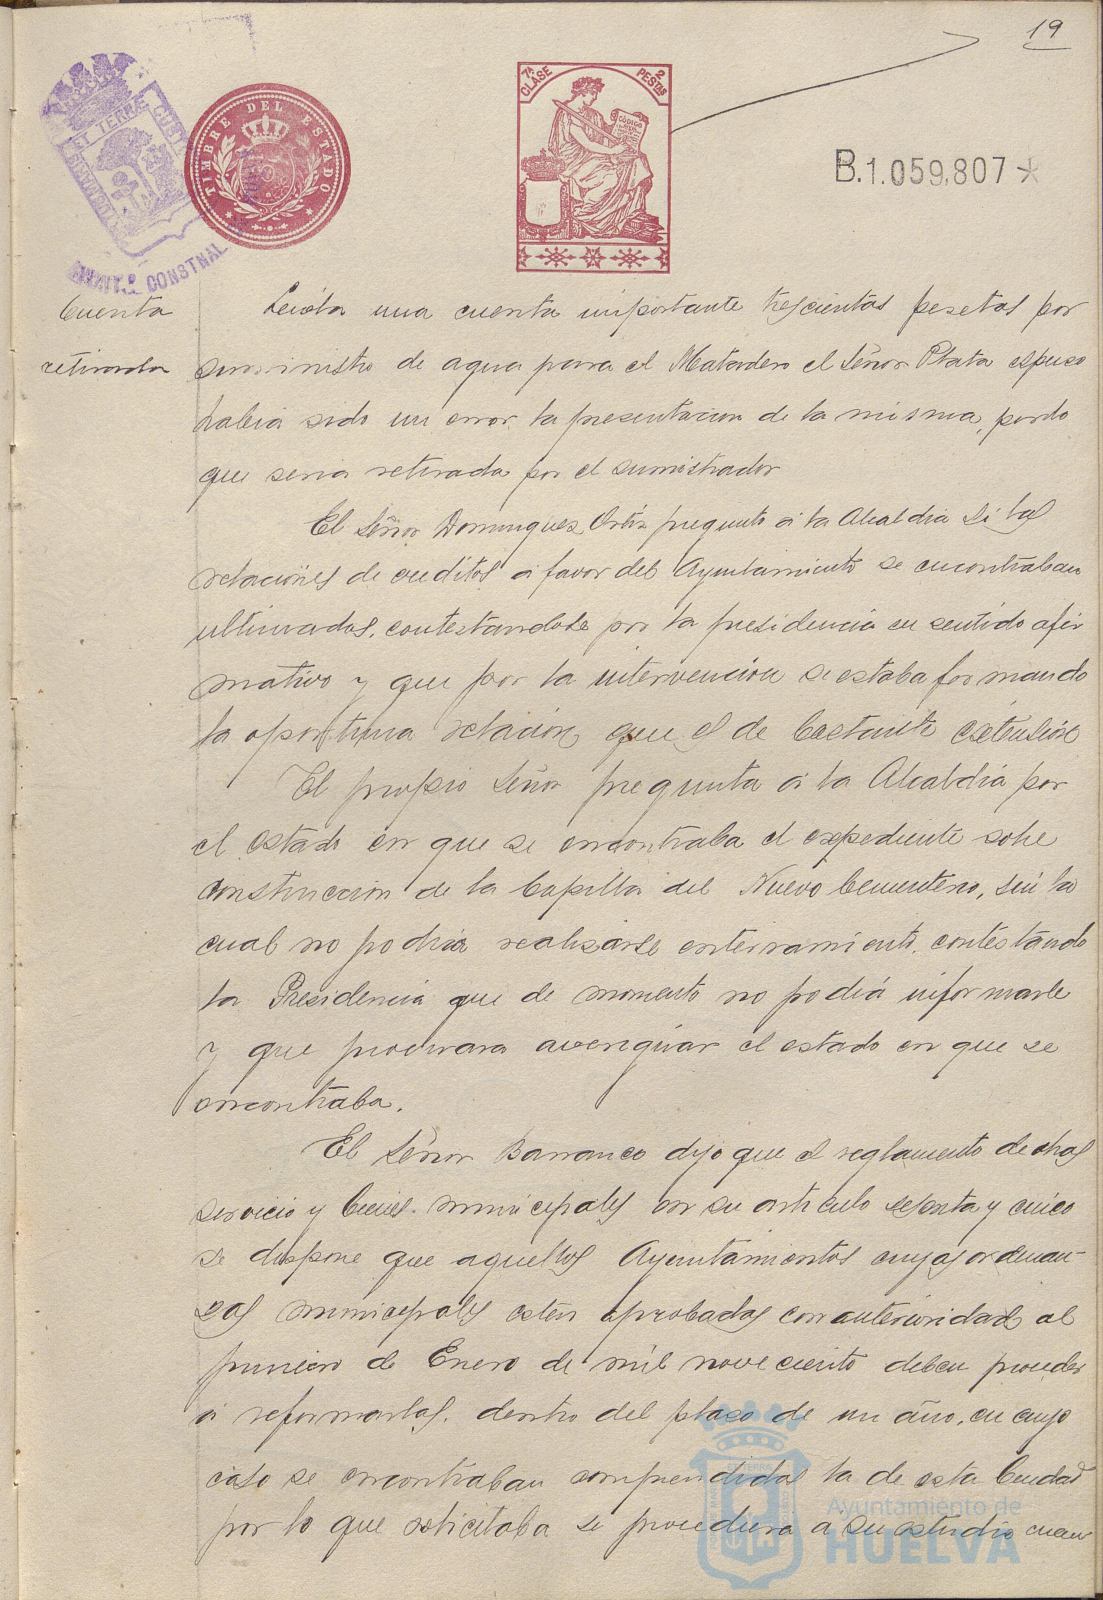 19
TIMBRE DEL ESTADO
7ª CLASE
2 PESTAS
CODIGO
B.1.059,807*
ET TERRÆ CUST
CONSTNAL
Cuenta
retirada
Leida una cuenta importante trescientas pesetas por
suministro de agua para el Matadero el Señor Plata espuso
habia sido un error la presentacion de la misma, por lo
que seria retirada por el sumistrador
El Señor Dominguez Ortiz pregunto á la Alcaldia si las
relaciones de creditos á favor del Ayuntamiento se encontraban
ultimadas, contestandole por la presidencia en sentido afir
mativo y que por la intervencion se estaba formando
la oportuna relacion que es de bastante extension
El propio Señor pregunta á la Alcaldia por
el estado en que se encontraba el expediente sobre
construccion de la Capilla del Nuevo Cementerio, sin la
cual no podria realizarse enterramiento, contestando
la Presidencia que de momento no podiá informarle
y que procurara averiguar el estado en que se
encontraba.
El Señor Barranco dijo que el reglamento de obras
servicio y bienes municipales en su articulo sesenta y cinco
se dispone que aquellos Ayuntamientos cuyas ordenan-
zas municipales esten aprobadas con anterioridad al
primero de Enero de mil novecientos deben proceder
á reformarlas, dentro del plazo de un año, en cuyo
caso se encontraban comprendidas la de esta Ciudad
por lo que solicitaba se procediera á su estudio
Ayuntamiento de
HUELVA